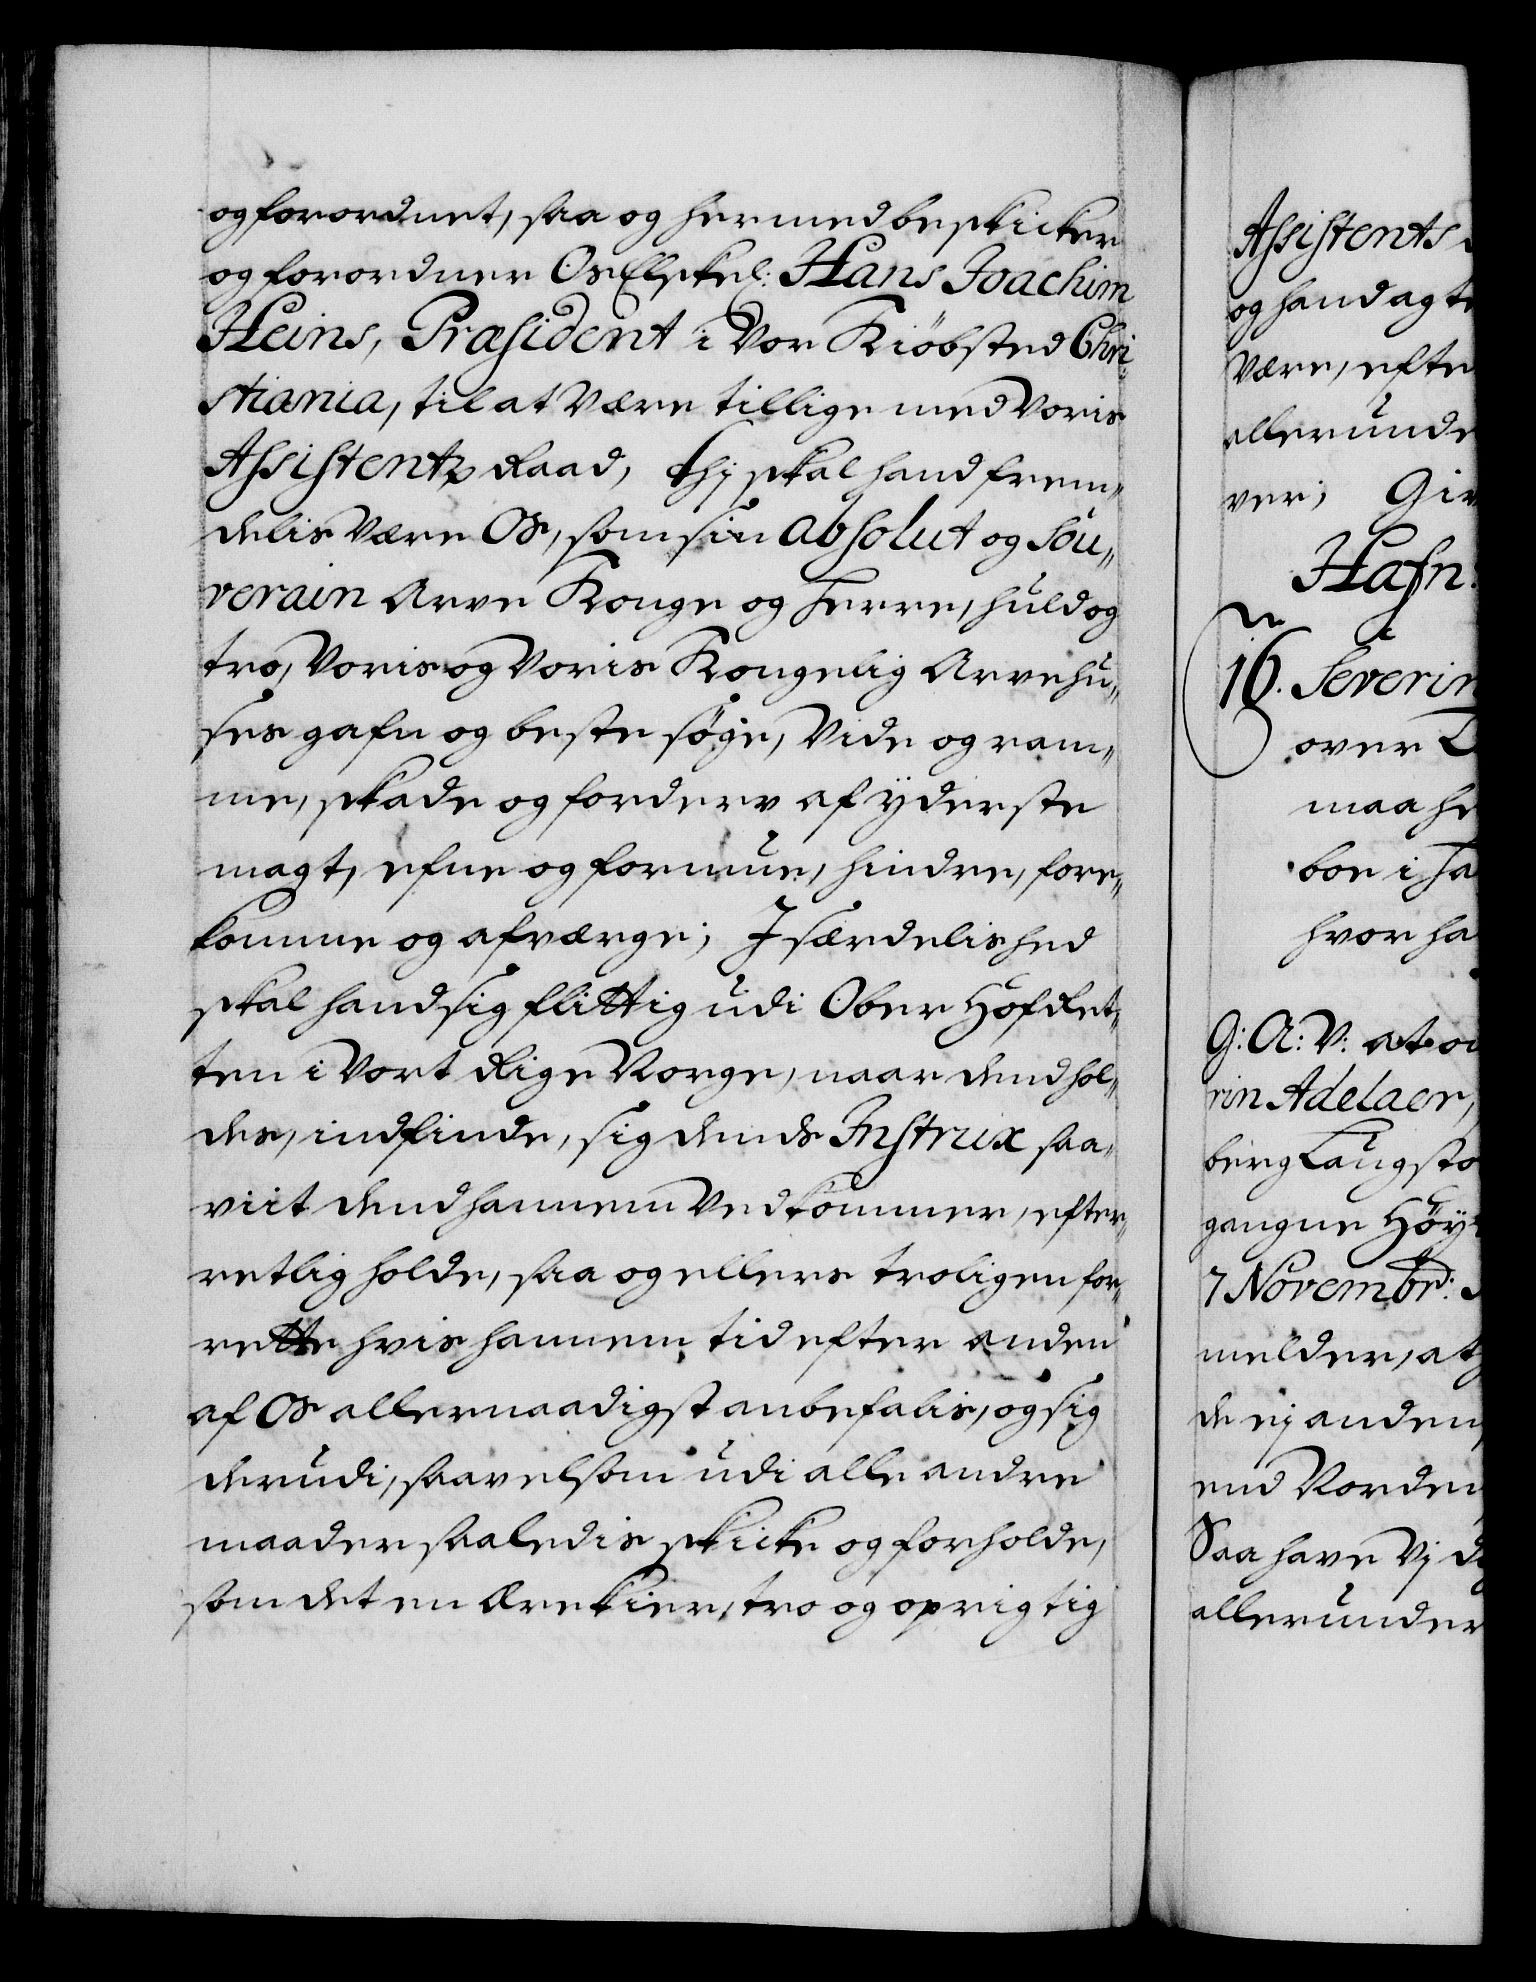 og forordnet, saa og hermed beskicker
og forordner Os Elskel: Hans Joachim
Heins, Præsident i Vor Kiöbsted Chri-
stiania, til at Være tillige med Voris
Assistentz Raad, Thj skal hand frem„
delis Være Os, som sin absolut og Sou„
verain Arve Konge og Herre, huld og
tro, Voris og Voris Kongelig Arvehu„
ses gafn og beste søge, Vide og ram„
me, skade og forderv af yderste
magt, efne og formue, hindre, fore„
komme og afværge; J særdelished
skal hand sig flittig udi Ober Hof Ret„
ten i Vort Rige Norge, naar dend hol„
des, indfinde, sig dends Instrux saa„
viit dend hannem Vedkommer, efter„
retlig holde, saa og ellers troligen for„
rette hvis hannem tid efter anden
af Os allernaadigst anbefalis, og sig
derudi, saavelsom udi alle andre
maader saaledis skicke og forholde,
som det en Ærekier, tro og oprigtig
Assistents
og hand agte
Være, efte
allerunde
ver; Giv
Hafn:
16. Severin
over
maa he
boe i
hvor ha
G: A: V: at
rin Adelaer,
berg Laugsto
gangne Höy
7 Novembr:
melder, at
de ej anden
end Norden
Saa have Vj
allerunder